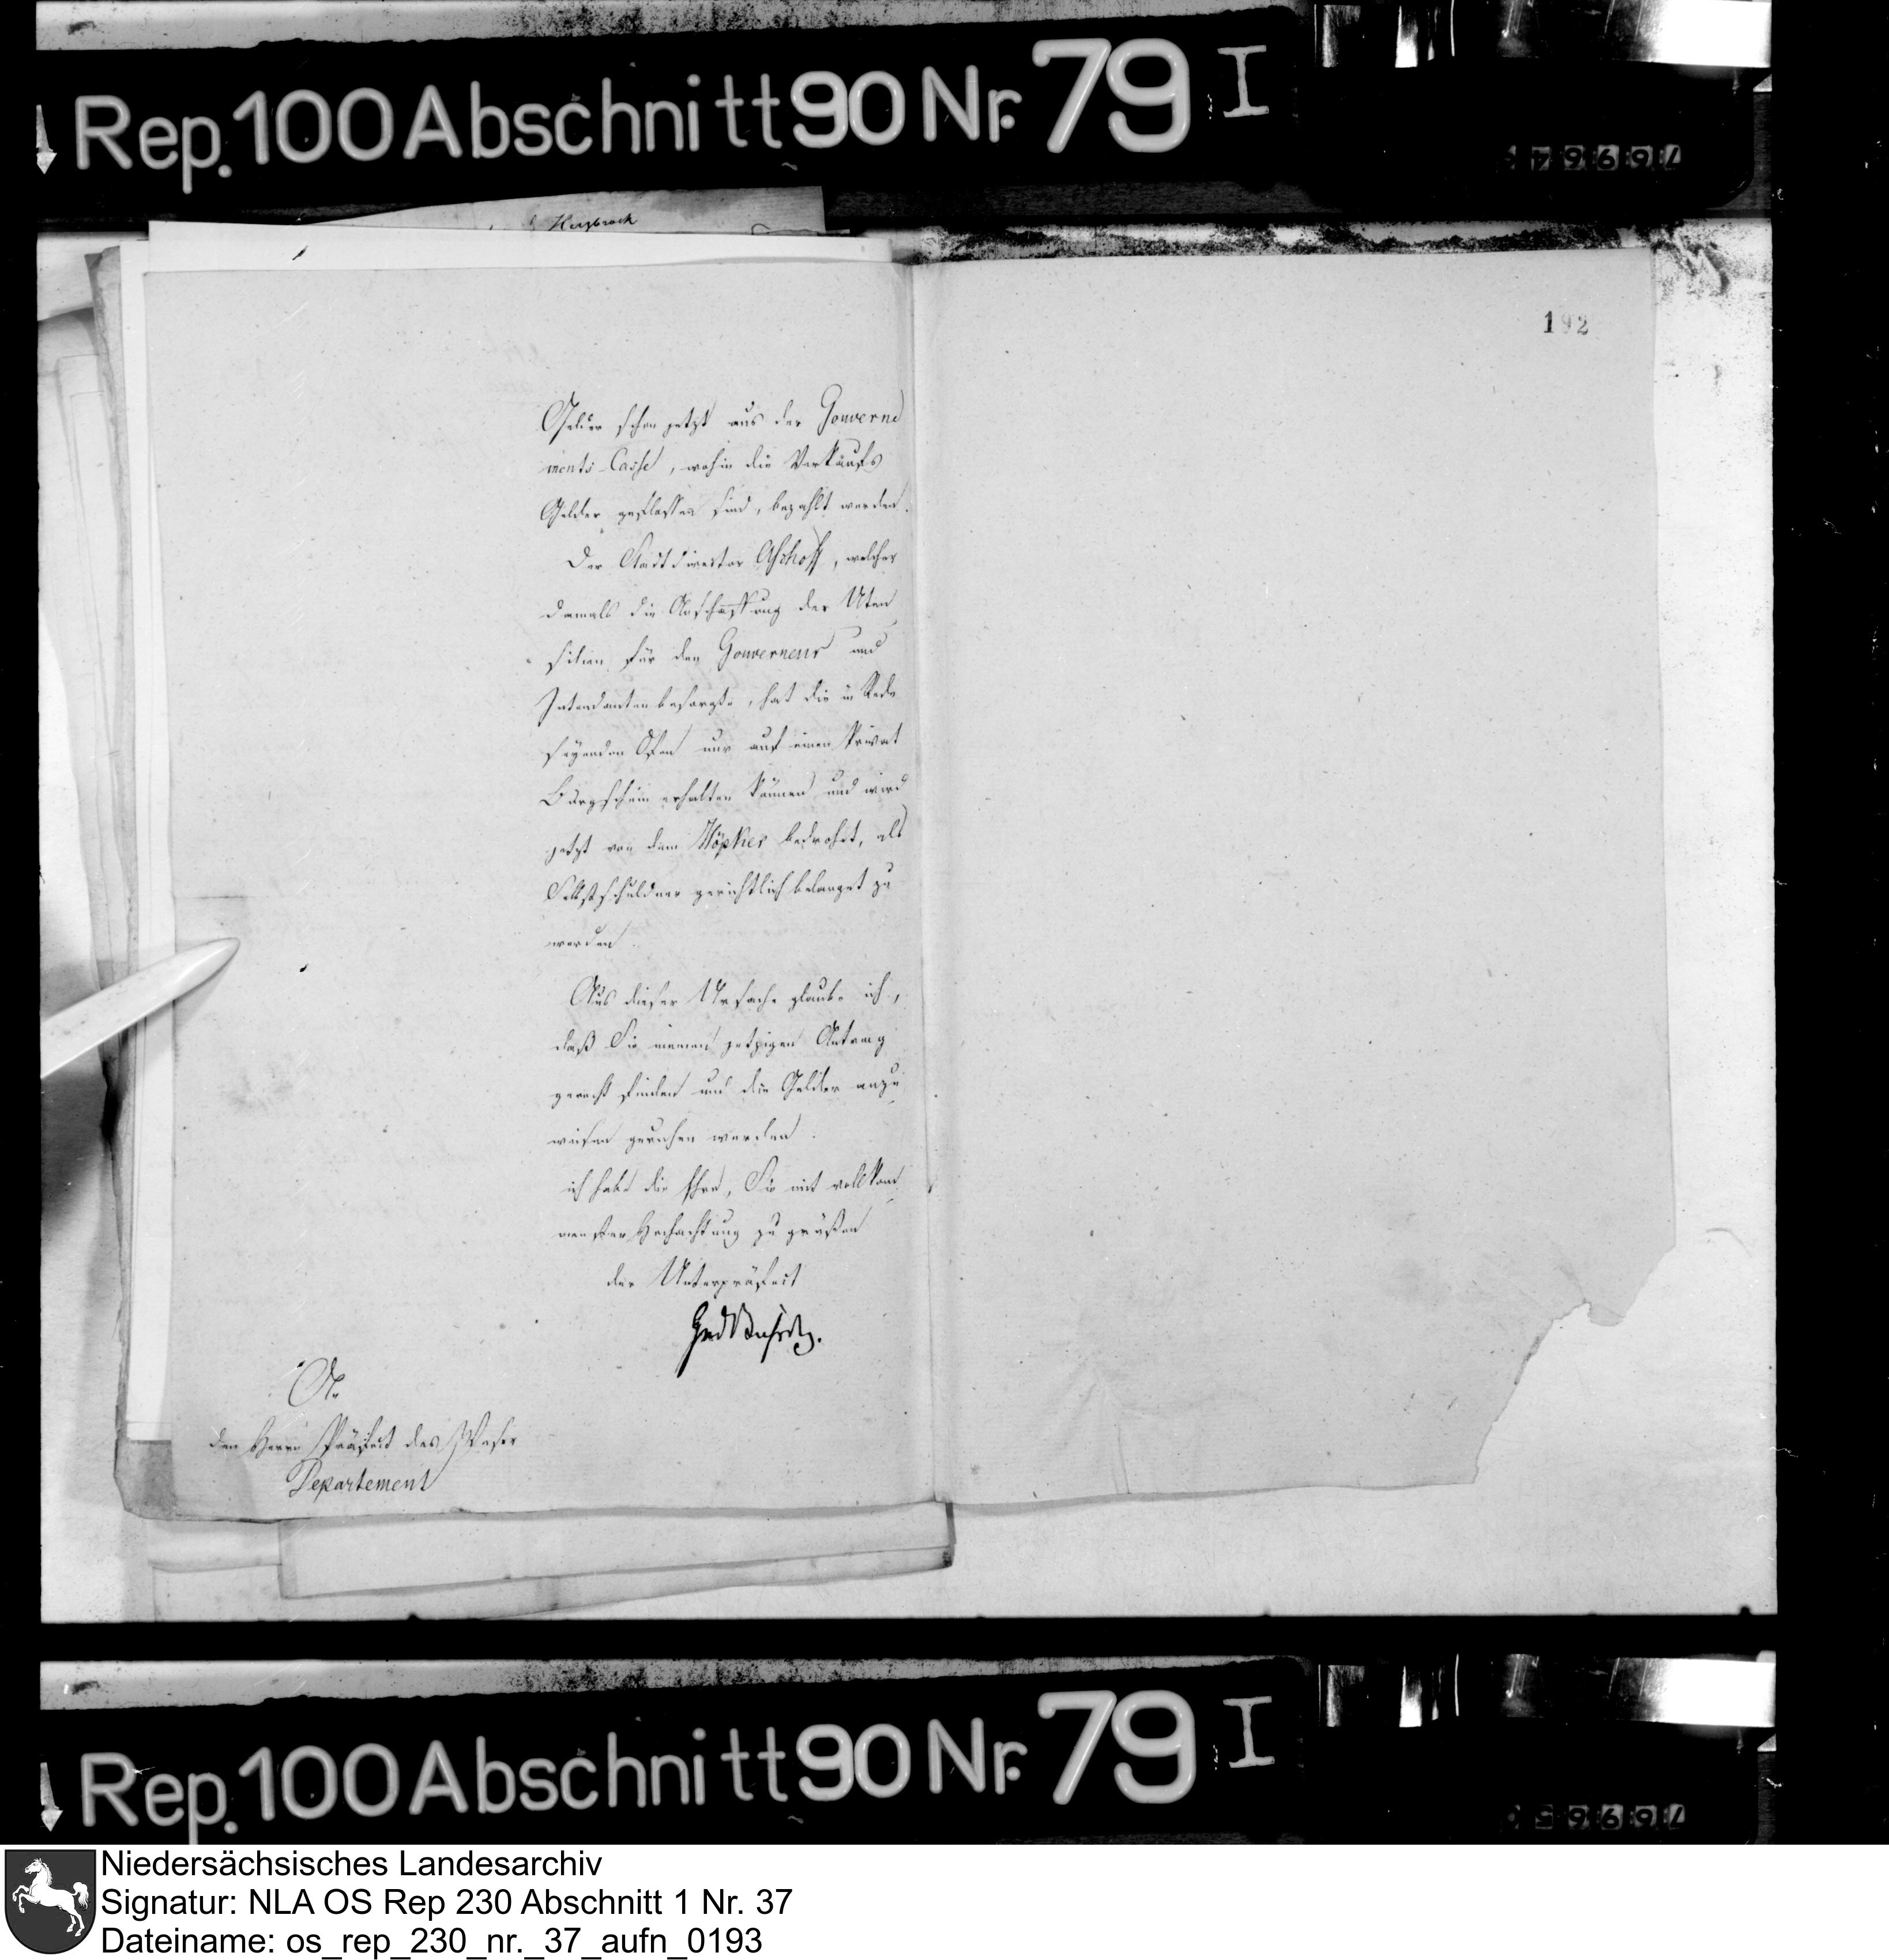 Rep. 100 Abschnitt 90 Nr. 79 I
Herzbrock
192
Gelder schon jetzt aus der Gouverne
ments-Casse, wohin die Verkaufs
Gelder geflossen sind, bezahlt werden.
Der Stadtdirector Aschoff, welcher
damals die Anschaffung der Uten
silien für den Gouverneur und
Intendanten besorgte, hat die in Rede
seyenden Ofen nur auf einen Privat
Burgschein erhalten können und wird
jetzt von dem Höpker bedrohet, als
Selbstschuldner gerichtlich belanget zu
werden
Aus dieser Ursache glaube ich,
daß Sie meinen jetzigen Antrag
gerecht finden und die Gelder anzu
weisen geruhen werden.
ich habe die Ehre, Sie mit vollkom
menster Hochachtung zu grüßen
der Unterpräfect
An
den Herrn Präfect des Weser
Departement
Rep. 100 Abschnitt 90 Nr. 79 I
Niedersächsisches Landesarchiv
Signatur: NLA OS Rep 230 Abschnitt 1 Nr. 37
Dateiname: os_rep_230_nr._37_aufn_0193